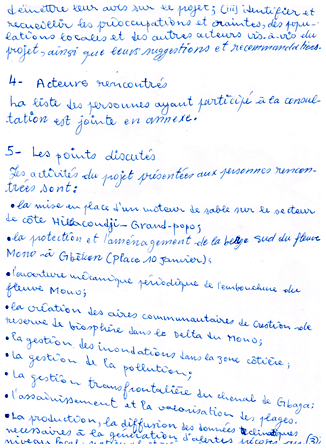 d'émettre leur avis sur le projet ; (iii) identifier et
recueillir les préoccupations et craintes, des popu-
lations locales et des autres acteurs vis-à-vis du
projet, ainsi que leurs suggestions et recommandations.
4- Acteurs rencontrés
La liste des personnes ayant participé à la consul-
tation est jointe en annexe.
5- Les points discutés
Les activités du projet présentées aux personnes rencon-
trées sont :
• la mise en place d'un moteur de sable sur le secteur
de côte Hillacondji-Grand-popo ;
• la protection et l'aménagement de la berge sud du fleuve
Mono à Gbèkon (Place 10 janvier) ;
• l'ouverture mécanique périodique de l'embouchure du
fleuve Mono ;
• la création des aires communautaires de Gestion de
reserve de biosphère dans le Delta du Mono ;
• la gestion des inondations dans la zone côtière ;
• la gestion de la pollution ;
• la gestion transfrontalière du chenal de Gbaga ;
• l'assainissement et la valorisation des plages.
• la production, la diffusion des données
nécessaires à la génération d'alertes
niveau